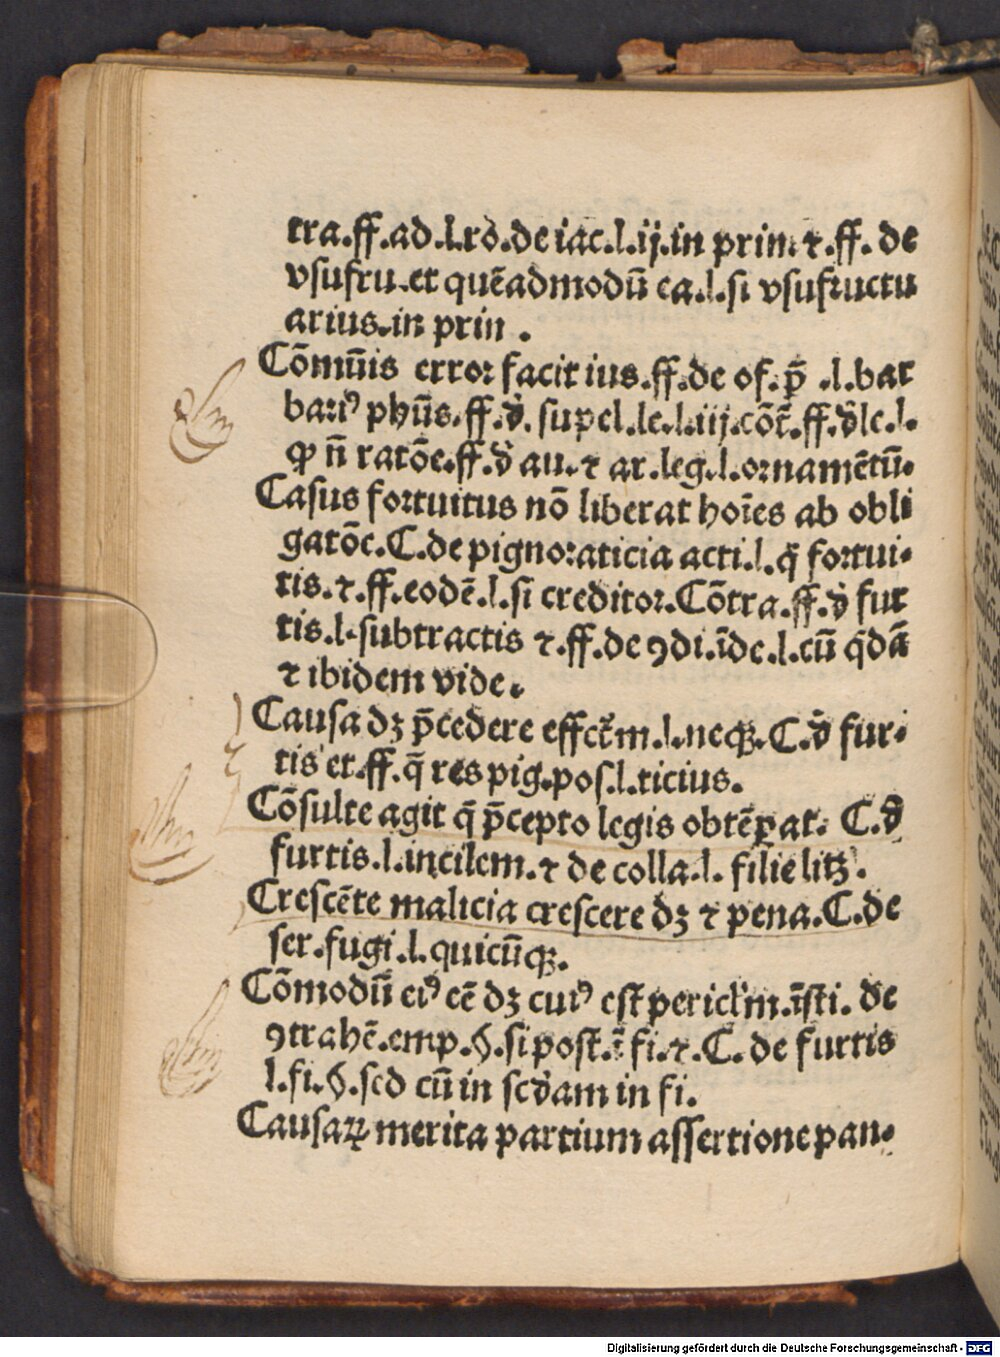 tra.ff.ad.l.ro.de iac.l.ij.in prin. ⁊.ff. de
vsufru.et quēadmodū ea.l.si vsufructu
arius.in prin.
Cōmūis error facit ius.ff.de of.p̄ .l.bar
bariꝰ phūs.ff.d̓. supel.le.l.iij.cōt̄.ff.d̓ le.l.
ꝙ n̄ ratōe.ff.d̓ au.⁊ ar.leg.l.ornamētū.
Casus fortuitus nō liberat hoīes ab obli
gatōe.C.de pignoraticia acti.l.q̄ fortui.
tis.⁊.ff.eodē.l.si creditor.Cōtra.ff.d̓ fur
tis.l.subtractis ⁊.ff.de ꝯdi.īde.l.cū q̄dā
⁊ ibidem vide.
Causa dꝫ p̄cedere effctm̄.l.neqꝫ.C.d̓ fur.
tis et.ff.q̄ res pig.pos.l.ticius.
Cōsulte agit q̄ p̄cepto legis obtēꝑat. C.d̓
furtis.l.incilem.⁊ de colla.l. filie litꝫ.
Crescēte malicia crescere dꝫ ⁊ pena.C.de
ser.fugi.l.quicūqꝫ.
Cōmodū eiꝰ eē dꝫ cuiꝰ est pericl̓m.īsti. de
ꝯtrahē.emp.§.si post.ī fi.⁊.C. de furtis
l.fi.§.sed cū in scd̓am in fi.
Causaꝝ merita partium assertione pan.
Digitalisierung gefördert durch die Deutsche Forschungsgemeinschaft - DFG